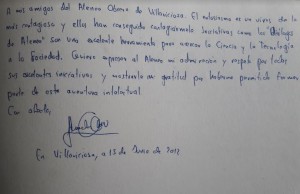 A mis amigos del Ateneo Obrero de Villaviciosa. El entusiasmo es un virus de lo
más contagioso y ellos han conseguido contagiármelo. Iniciativas como los "Diálogos
de Ateneo" son una excelente herramienta para acercar la Ciencia y la Tecnología
a la Sociedad. Quiero expresar al Ateneo mi admiración y respeto por todas
sus excelentes iniciativas y mostrarle mi gratitud por haberme permitido formar
parte de esta aventura intelectual.
Con afecto,
En Villaviciosa, a 15 de Junio de